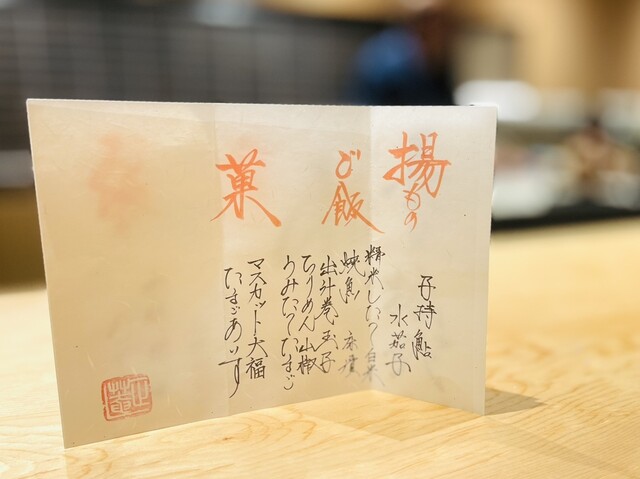 揚もの
子持鮎
水茄子
ご飯
精米したて白米
焼魚
出汁巻玉子
ちりめん山椒
うみたてたまご
菓
マスカット大福
たまごあいす